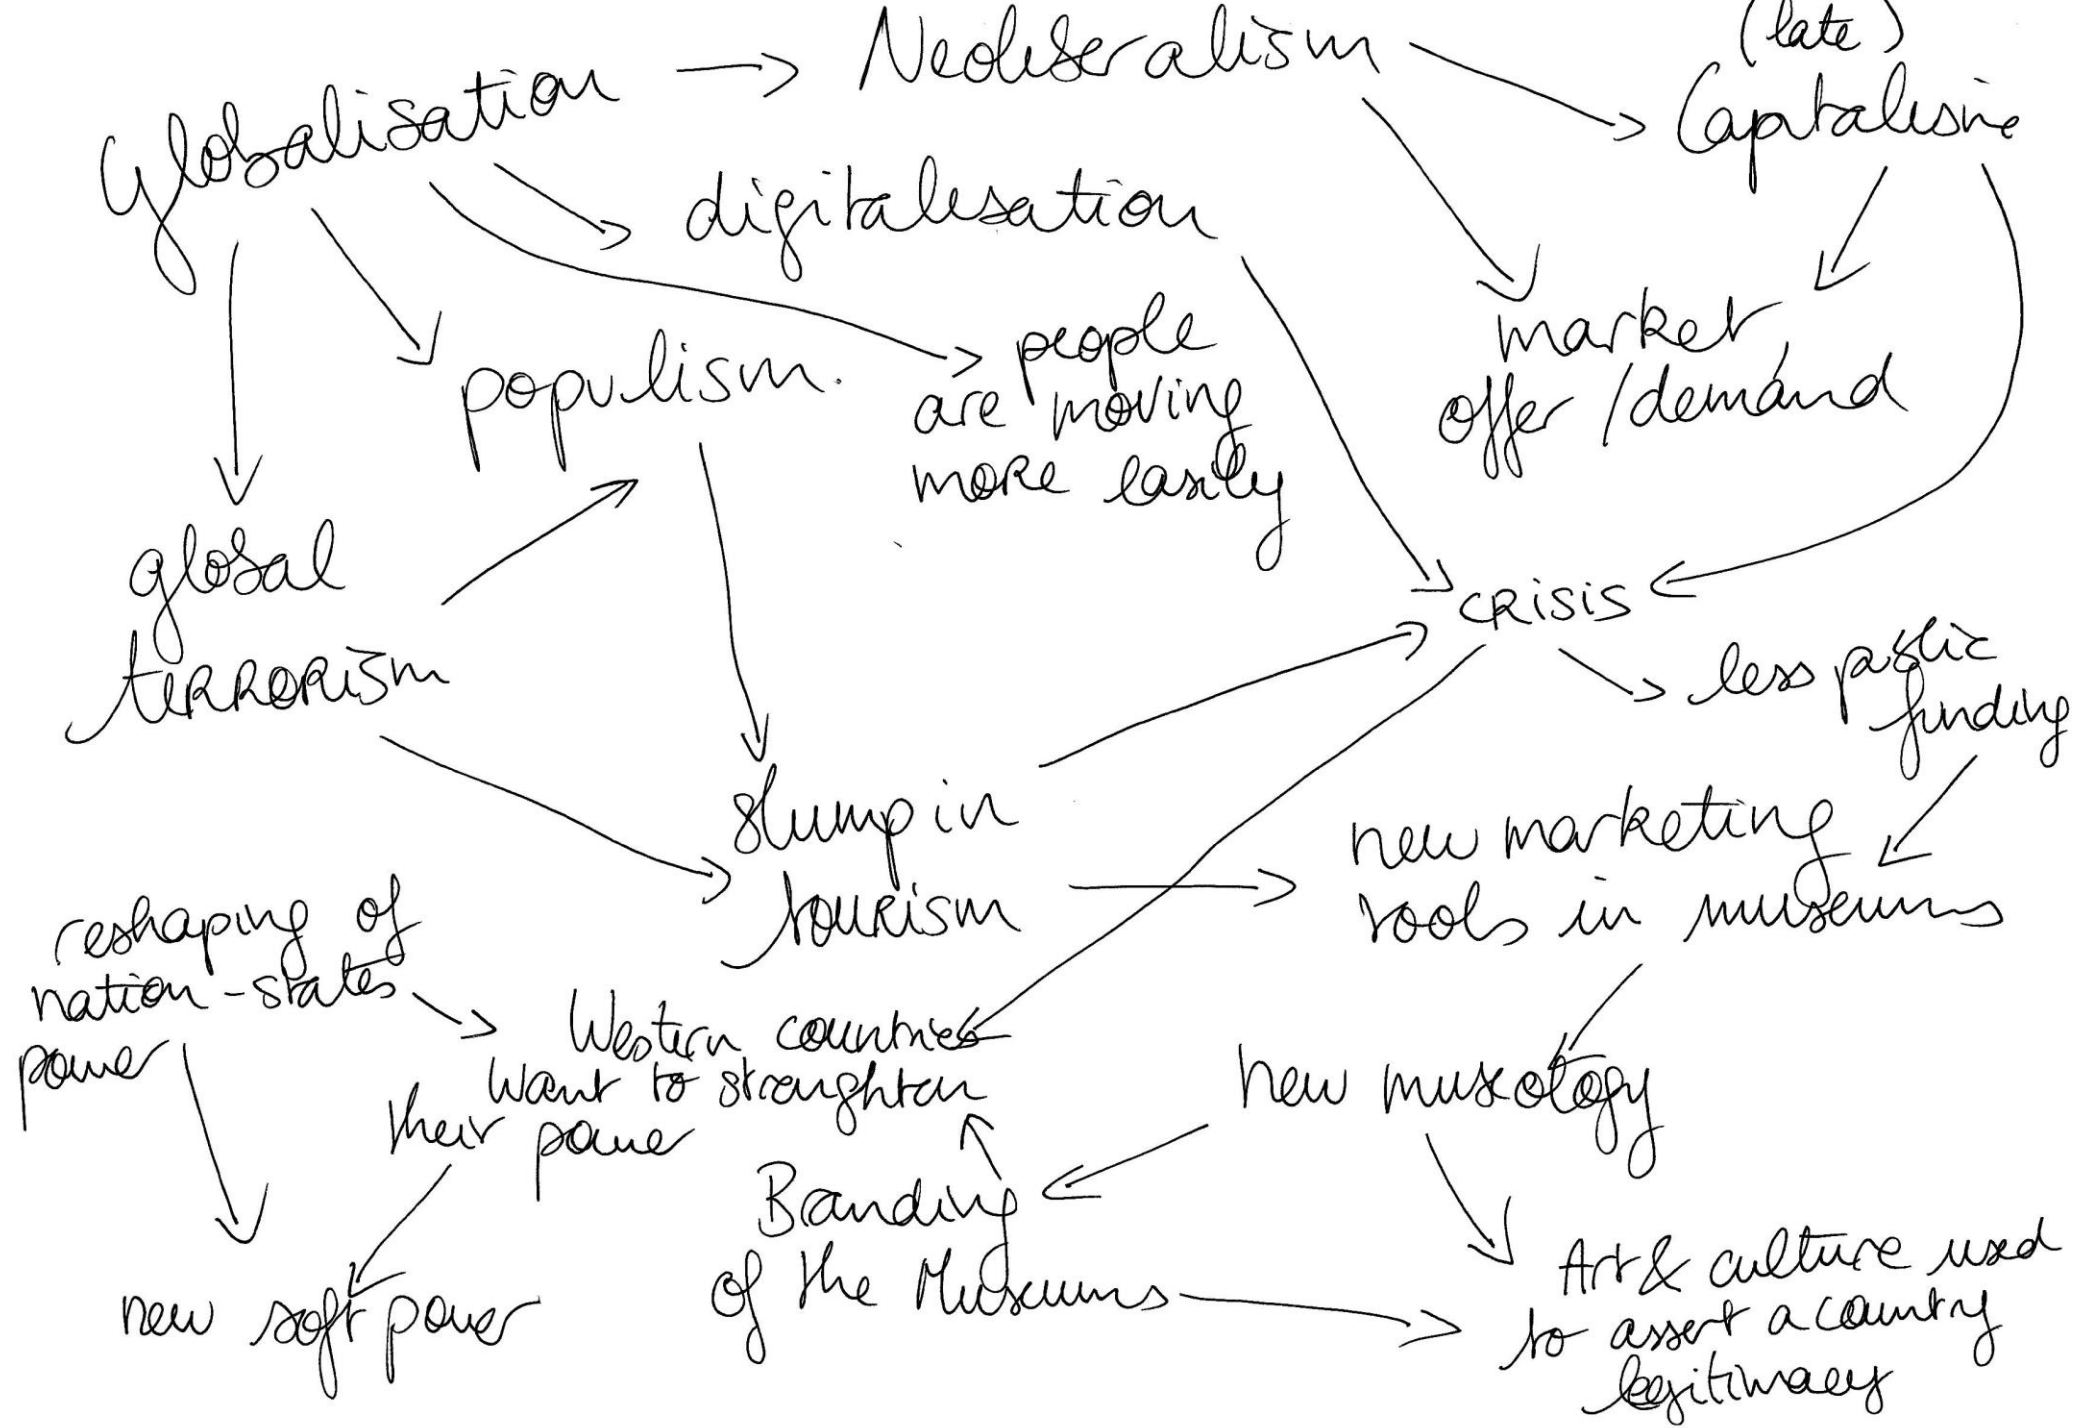 (late)
Globalisation
Neoliberalism
Capitalisme
digitalisation
people
are moving
more easily
market
offer / demand
populism.
global
terrorism
crisis
less public
funding
slump in
tourism
new marketing
tools in museums
reshaping of
nation-states
power
Western countries
want to straughten
their power
new museology
Branding
of the Museums
new soft power
Art & culture used
to assert a country
legitimacy